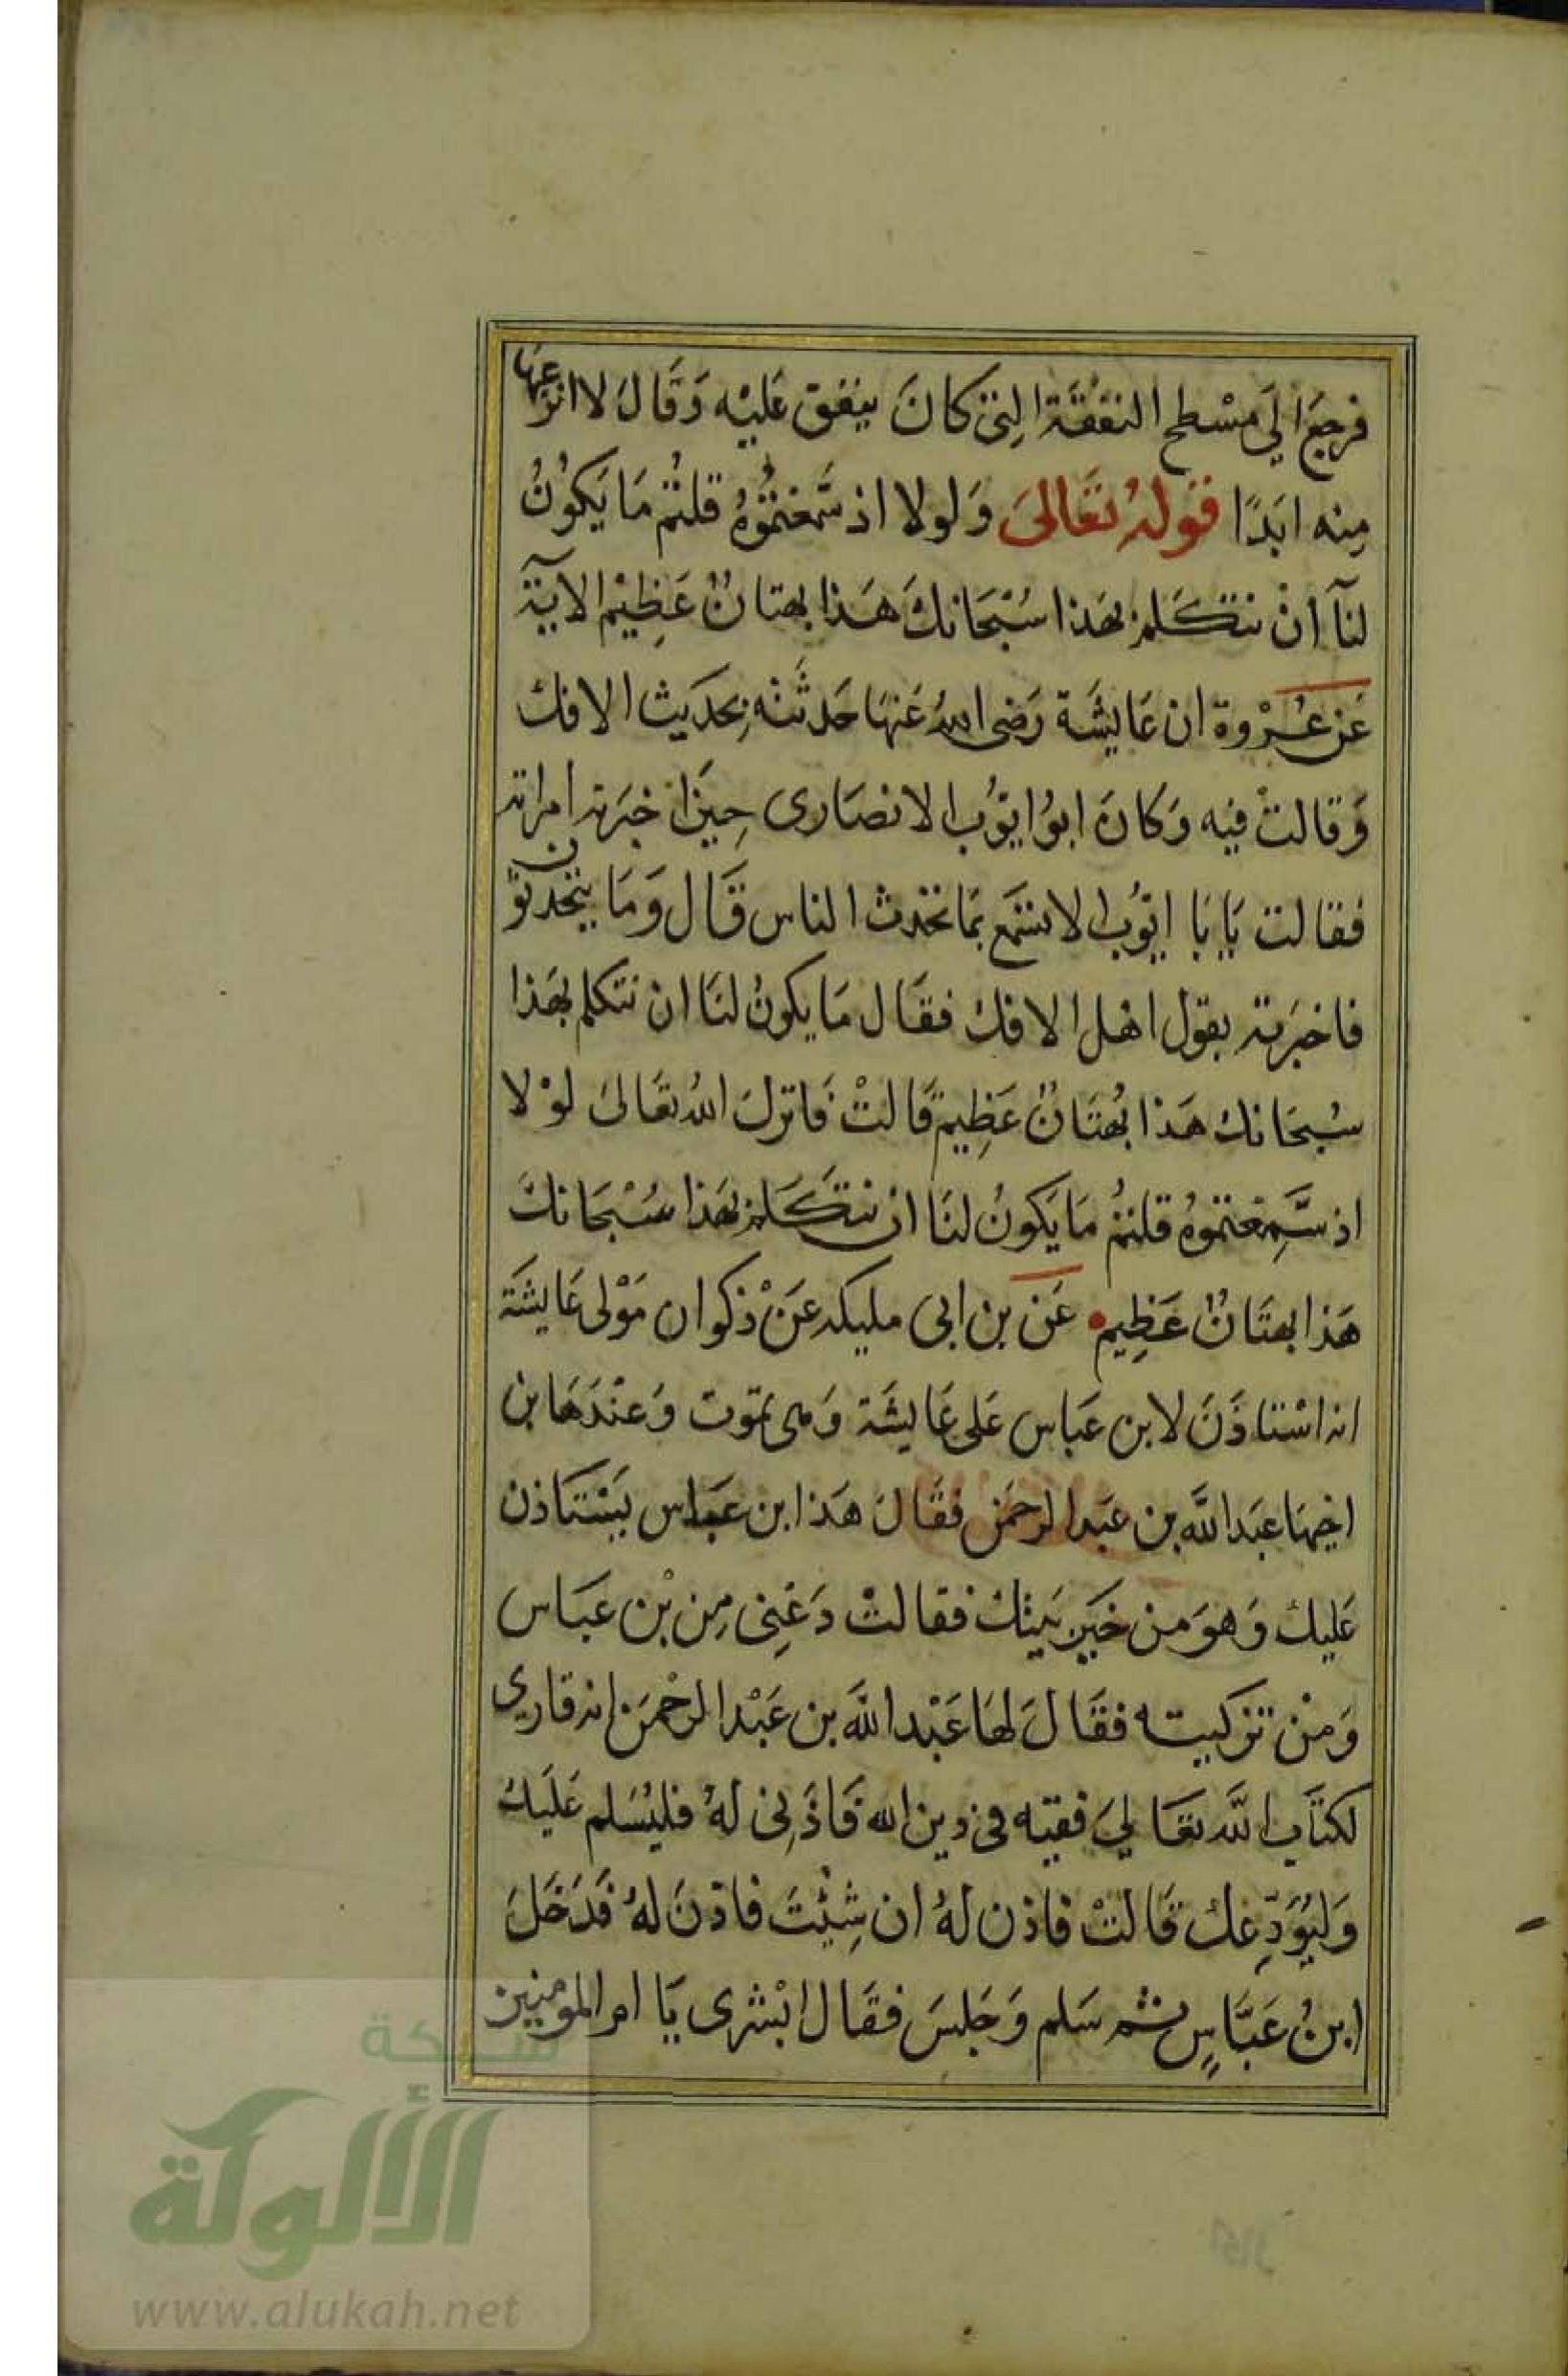 فرجع الى مسطح النفقة التي كان ينفق عليه وقال لا انزعها
منه ابدا قوله تعالى ولولا اذ سمعتموه قلتم ما يكون
لنا ان نتكلم بهذا سبحانك هذا بهتان عظيم الاية
عن عروة ان عايشة رضى الله عنها حدثته بحديث الافك
وقالت فيه وكان ابو ايوب الانصارى حين اخبرته امراته
فقالت يابا ايوب الا تسمع بما تحدث الناس قال وما يتحدثون
فاخبرته بقول اهل الافك فقال ما يكون لنا ان نتكلم بهذا
سبحانك هذا بهتان عظيم قالت فانزل الله تعالى لولا
اذ سمعتموه قلتم ما يكون لنا ان نتكلم بهذا سبحانك
هذا بهتان عظيم عن بن ابى مليكه عن ذكوان مولى عايشة
انه استاذن لابن عباس على عايشة وهى تموت وعندها بن
اخيها عبد الله بن عبد الرحمن فقال هذا ابن عباس يستاذن
عليك وهو من خير بنيك فقالت دعنى من بن عباس
ومن تزكيته فقال لها عبد الله بن عبد الرحمن انه قارى
لكتاب الله تعالى فقيه فى دين الله فاذنى له فليسلم عليك
وليودعك قالت فاذن له ان شيت فاذن له فدخل
ابن عباس ثم سلم وجلس فقال ابشرى يا ام المومنين
شبكة
الألوكة
www.alukah.net